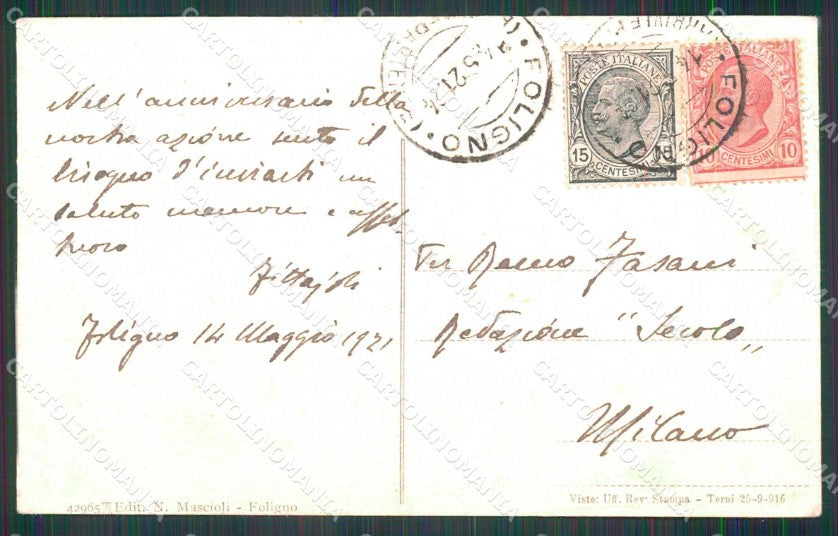 Nell'anniversario della
nostra azione sento il
bisogno d'inviarti un
saluto memore e affet-
tuoso
Foligno 14 Maggio 1921
42965 Edit. N. Mascioli - Foligno
FOLIGNO
14.5.21
POSTE ITALIANE
15 15
CENTESIMI
FOLIGNO
POSTE ITALIANE
10 10
CENTESIMI
Remo Fasani
Redazione "Secolo"
Milano
Visto: Uff. Rev. Stampa - Terni 25-9-916
CARTOLINOMANIA